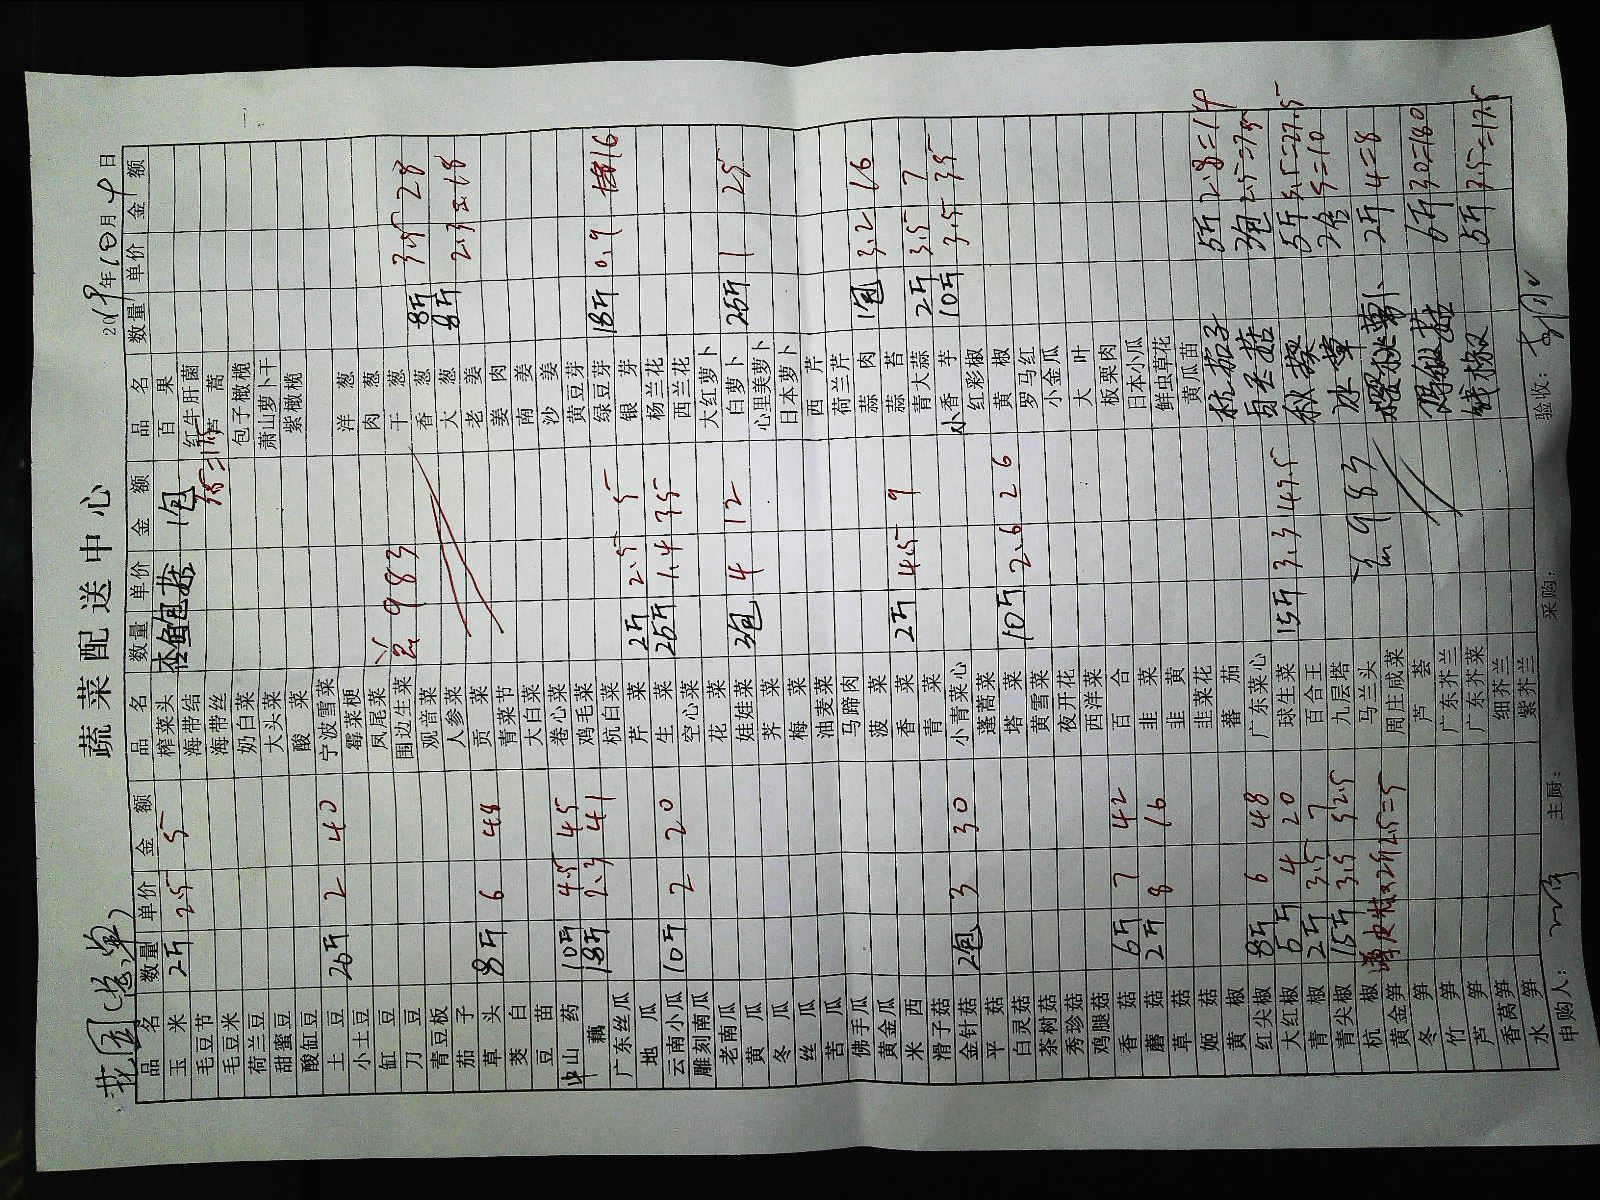 蔬菜配送中心
花园(港单) 2019年10月4日
品名 数量 单价 金额 品名 数量 单价 金额 品名 数量 单价 金额
玉米 2斤 2.5 5 榨菜头 杏鲍菇 1包 百果
毛豆节 海带结 红牛肝菌
毛豆米 海带丝 芦蒿
荷兰豆 奶白菜 包子橄榄
甜蜜豆 大头菜 萧山萝卜干
酸缸豆 酸菜 紫橄榄
土豆 20斤 2 40 宁波雪菜
小土豆 霉菜梗 洋葱
缸豆 凤尾菜 肉葱
刀豆 围边生菜 总983 干葱 8斤 3.5 28
青豆板 观音菜 香葱
茄子 人参菜 大葱 8斤 2.3 18
草头 8斤 6 48 贡菜 老姜
茭白 青菜节 姜肉
豆苗 大白菜 南姜
山药 10斤 4.5 45 卷心菜 沙姜
藕 18斤 2.3 41 鸡毛菜 黄豆芽
广东丝瓜 杭白菜 绿豆芽 18斤 0.9 16
地瓜 芹菜 2斤 2.5 5 银芽
云南小瓜 10斤 2 20 生菜 25斤 1.4 35 杨兰花
雕刻南瓜 空心菜 西兰花
老南瓜 花菜 大红萝卜
黄瓜 娃娃菜 3包 4 12 白萝卜 25斤 1 25
冬瓜 荠菜 心里美萝卜
丝瓜 梅菜 日本萝卜
苦瓜 油麦菜 西芹
佛手瓜 马蹄肉 荷兰芹
黄金瓜 菠菜 蒜肉 1包 3.2 16
米西 香菜 2斤 4.5 9 蒜苔
滑子菇 青菜 青大蒜 2斤 3.5 7
金针菇 2包 3 30 小青菜心 小香芋 10斤 3.5 35
平菇 蓬蒿菜 红彩椒
白灵菇 塔菜 10斤 2.6 26 黄椒
茶树菇 黄雪菜 罗马红
秀珍菇 夜开花 小金瓜
鸡腿菇 西洋菜 大叶
香菇 6斤 7 42 百合 板栗肉
蘑菇 2斤 8 16 韭菜 日本小瓜
草菇 韭黄 鲜虫草花
姬菇 韭菜花 黄瓜苗
黄椒 蕃茄 杭茄子 5斤 2.8=14
红尖椒 8斤 6 48 广东菜心 白玉菇 3包 2.5=7.5
大红椒 5斤 4 20 球生菜 15斤 3.3 49.5 秋葵 5斤 5.5=27.5
青椒 2斤 3.5 7 百合王 冰草 2合 5=10
青尖椒 15斤 3.5 52.5 九层塔
杭椒 2斤2.5=5 马兰头 总983 樱桃萝卜 2斤 4=8
黄金笋 周庄咸菜
冬笋 芦荟 6斤 30=180
竹笋 广东芥兰
芦笋 广东芥菜 线椒 5斤 3.5=17.5
香莴笋 细芥兰
水笋 紫芥兰
申购人： 主厨： 采购： 验收：